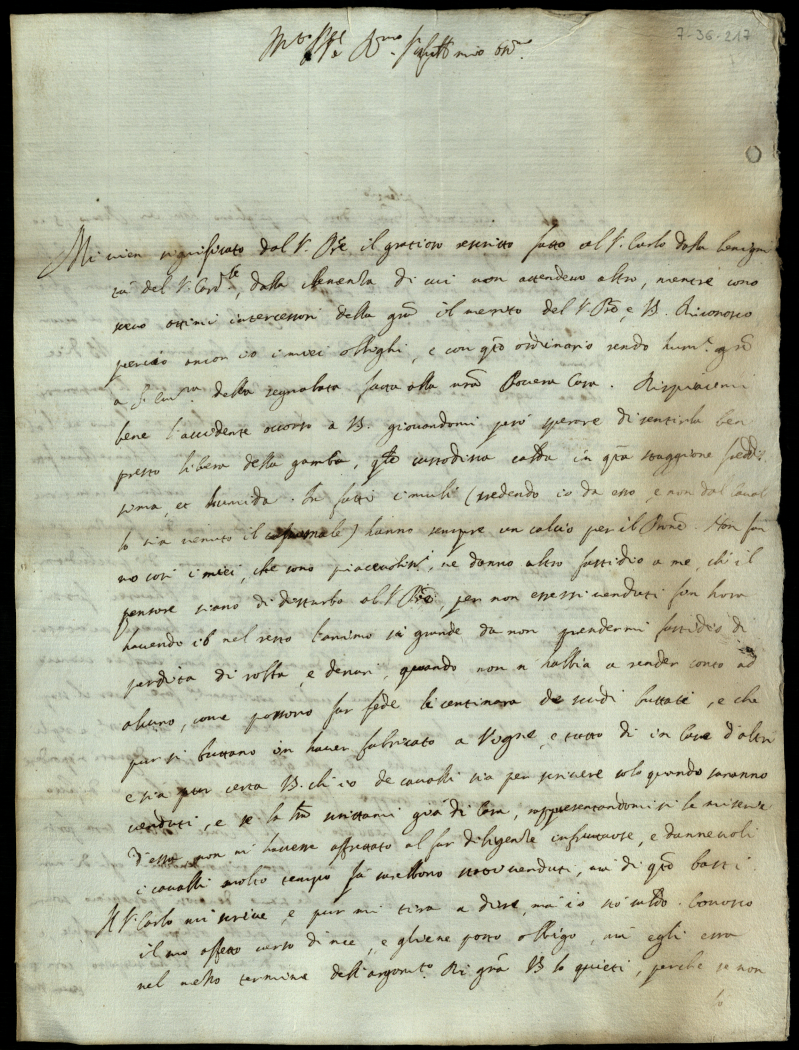 7-36-217
mio
Mi vien significato dal S. Pre il gratioso rescritto fatto al S. Carlo dalla benigni
tà del S. Card.le, dalla clemenza di cui non attendevo altro, mentre sono
stati ottimi intercessori della gra il merito del S. Pre, e VS. Riconosco
perciò ancor io i miei oblighi, e con qto ordinario rendo hum. gre
a S. Em.za della segnalata fatta alla nra Povera Casa. Rispiacemi
bene l'accidente occorso a VS. giovandomi però sperare di sentirla ben
presto libera della gamba, custodita calda in qta staggione freddis
sima, et humida. In fatti i muli (credendo io da esso, e non dal caval
lo sia venuto il male) hanno sempre un calcio per il Pne. Non son
no così i miei, che sono piacevolissi, ne danno altro fastidio a me, ch'il
pensare siano di disturbo al S. Pre, per non essersi venduti fin hora
havendo io nel resto l'animo sì grande da non prendermi fastidio di
perdita di robba, e denari, quando non n'habbia a render conto ad
alcuno, come possono far fede le centinara de scudi buttati, e che
pur si buttano in haver fabricato a Vigne, e tutto dì in Case d'altri
e sia pur certa VS. ch'io de cavalli sia per scrivere solo quando saranno
venduti, e se la scrittami già di Casa, rappresentandomisi le miserie
d'essa non m'havesse affrettato al far diligenze infruttuose, e dannevoli
i cavalli molto tempo fa sarebbono stati venduti, mà di qto basti
Il S. Carlo mi scrive, e pur mi tira a dire, mà io stò saldo. Conosco
il suo affetto verso di me, e gliene porto obligo, mà egli erra
nel mezzo termine dell'argomto. Di gra VS. lo quieti, perche se non
lo